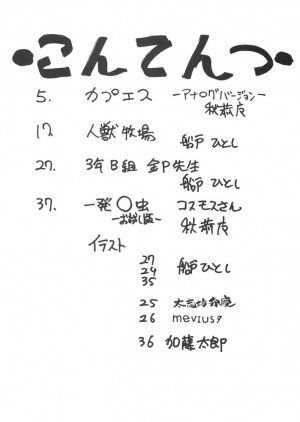 ・こんてんつ・
5. カプエス ーアナログバージョンー
秋恭度
17. 人獣牧場
船戸ひとし
27. 3年B組 金P先生
船戸ひとし
37. 一発〇虫 コスモスさん
ーおおばし版ー
秋恭度
イラスト
27
29 船戸ひとし
35
25
26 mevius9
36 加藤太郎